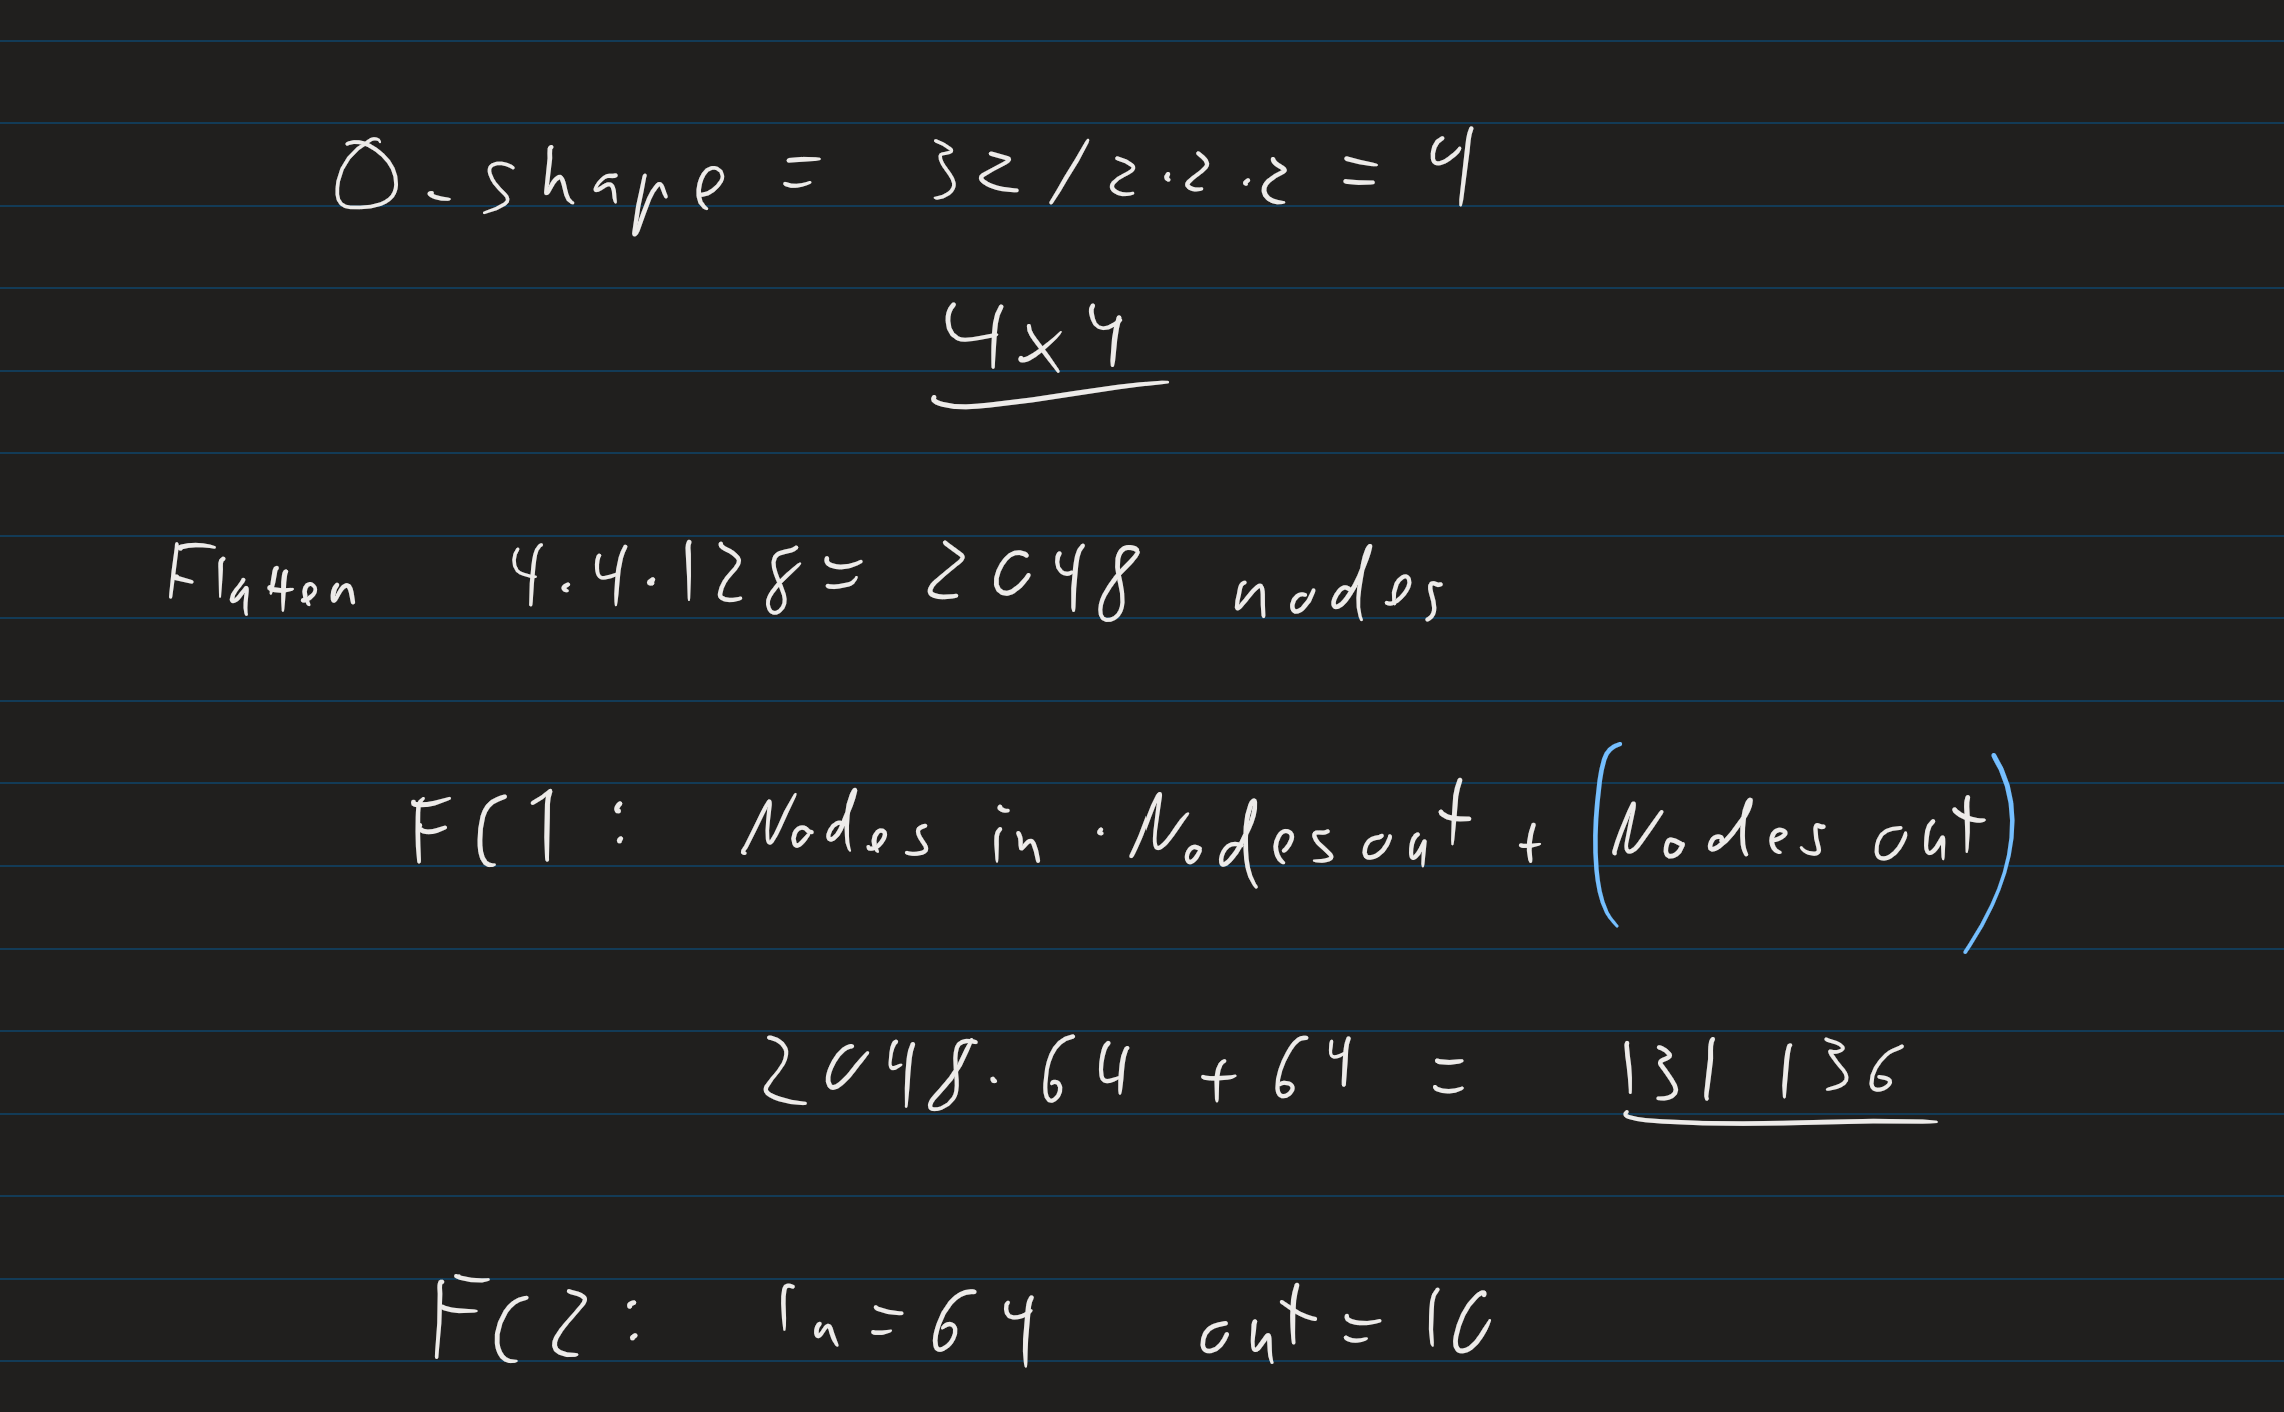 O_shape = 32/2·2·2 = 4
4x4
Flatten 4·4·128 = 2048 nodes
FC1: Nodes in · Nodes out + (Nodes out)
2048·64 + 64 = 131 136
FC2: In = 64 out = 10